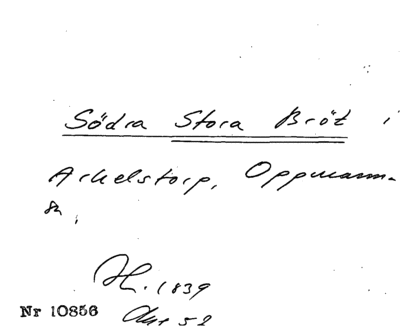 Södra Stora Bröt i
Arkelstorp, Oppmanna
sn.
H. 1839
Nr 10856